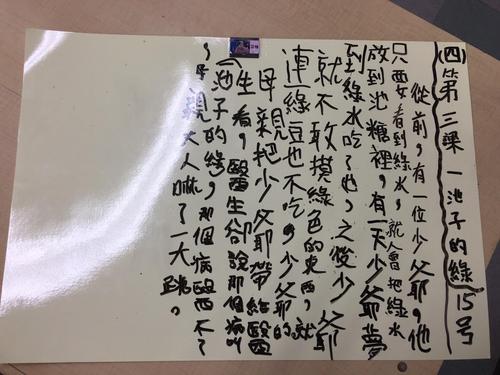 (四)第三樂一池子的綠15号
從前,有一位少爺,他
只要看到綠水,就會把綠水
放到池糖裡,有一天少爺夢
到綠水吃了他,之後少爺
就不敢摸綠色的東西,就
連綠豆也不吃,少爺的
母親把少爺帶給醫
生看,醫生卻說那個病叫
(池子的綠,那個病醫不了
,母親大人嚇了一大跳。